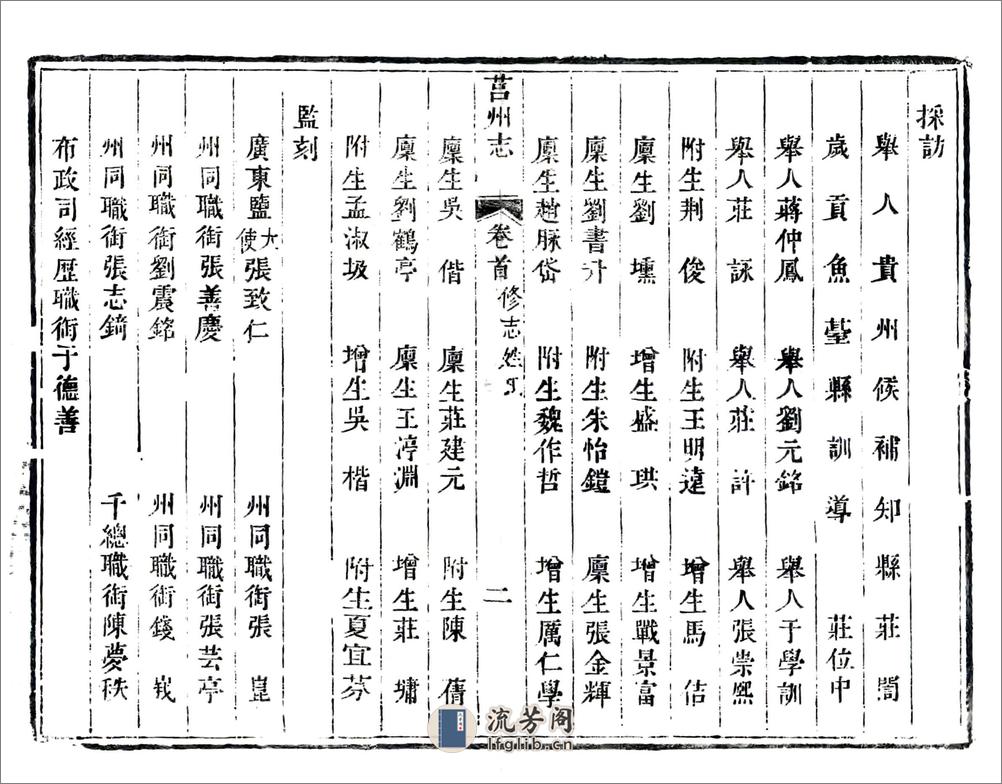 採訪
舉人貴州候補知縣莊誾
歲貢魚臺縣訓導 莊位中
舉人蔣仲鳳 舉人劉元銘 舉人于學訓
舉人莊詠 舉人莊許 舉人張崇熙
附生荆俊 附生王明遠 增生馬佶
廩生劉壎 增生盛珙 增生戰景富
廩生劉書升 附生朱怡鎧 廩生張金輝
廩生趙脈岱 附生魏作哲 增生厲仁學
莒州志 卷首 修志姓氏 二
廩生吳偕 廩生莊建元 附生陳蒨
廩生劉鶴亭 廩生王渟淵 增生莊墉
附生孟淑圾 增生吳楷 附生夏宜芬
監刻
廣東鹽大使張致仁 州同職銜張崑
州同職銜張善慶 州同職銜張芸亭
州同職銜劉震銘 州同職銜錢峩
州同職銜張志錡 千總職銜陳夢秩
布政司經歷職銜于德善
流芳阁
lfglib.cn